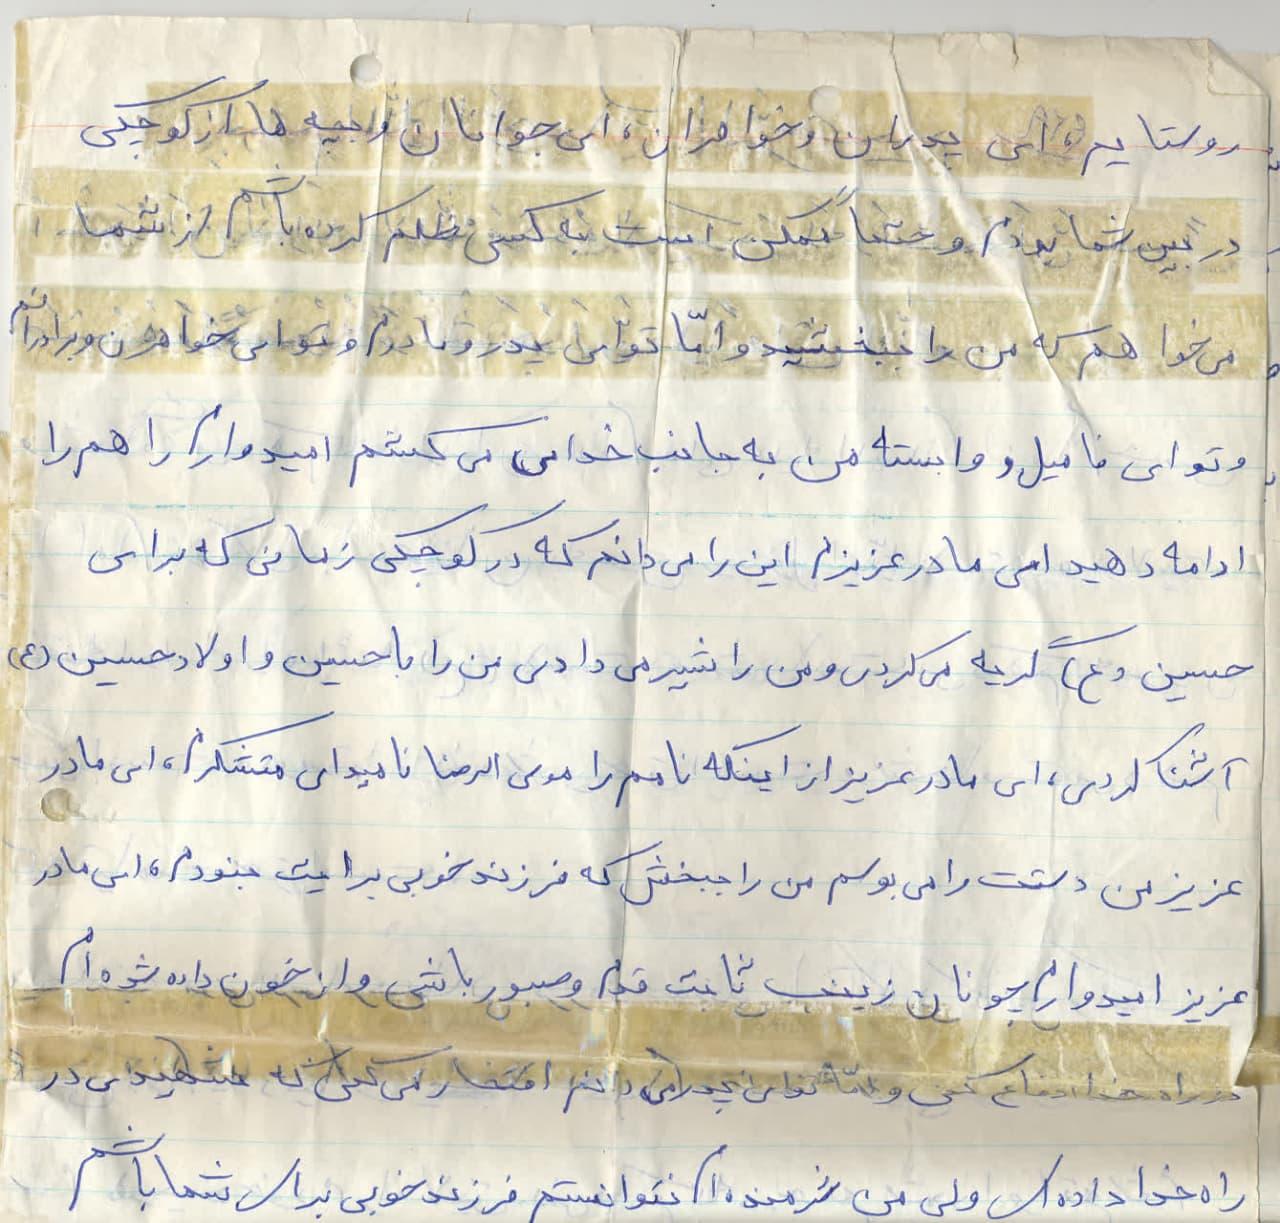 روستایم، ای پدران و خواهران، ای جوانان و بچه ها از کوچکی
در بین شما بودم و حتماً ممکن است به کسی ظلم کرده باشم از شما
می خواهم که من را ببخشید و امّا توای پدر و مادرم و توای خواهرن و برادرانم
و توای فامیل و وابسته من به جانب خدا می کشم امیدوارم راهم را
ادامه دهید امی مادر عزیزم این را می دانم که در کوچکی زمانی که برای
حسین (ع) گریه می کردی و من را شیر می دادی من را با حسین و اولاد حسین (ع)
آشنا کردی، ای مادر عزیز از اینکه نامم را موسی الرضا نامیدای متشکرم، ای مادر
عزیز من دستت را می بوسم من را ببخش که فرزند خوبی برایت نبودم، ای مادر
عزیز امیدوارم چونان زینب ثابت قدم و صبور باشی و از خون داده شده ام
در راه خدا دفاع کنی و امّا توای پدر می دانم افتخار می کنی که شهیدی در
راه خدا داده ای ولی من شرمنده ام نتوانستم فرزند خوبی برای شما باشم